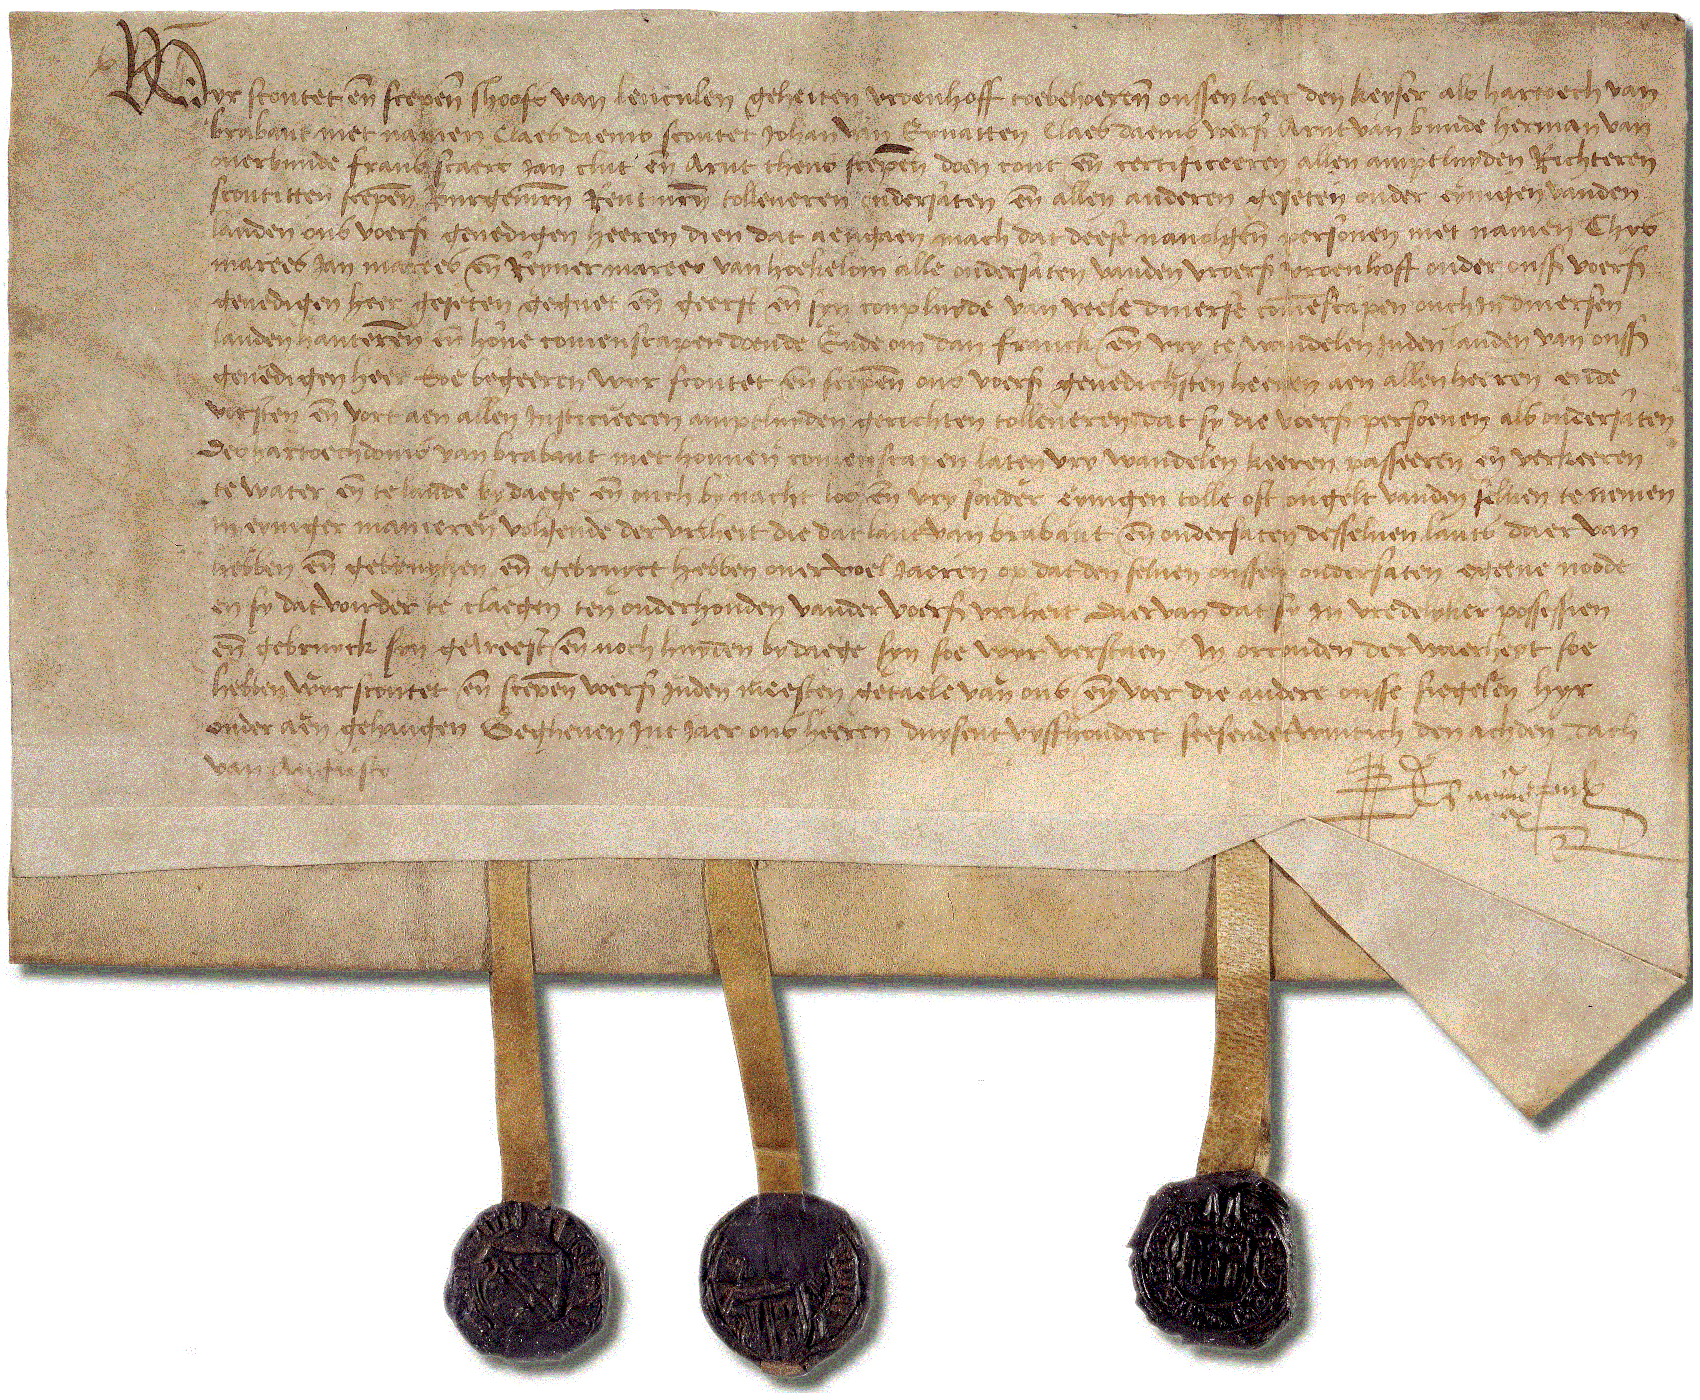 Wyr scoutet en̄ scepen̄ shoofs van lenculen geheiten vroenhoff toebehoeren̄ onssen heer den keyser als hartoech van
brabant met namen Claes daems scoutet Johan van Eynatten Claes daems vorss̄ Arnt van bunde herman van
ouerbunde franck staere Jan clut en̄ Arnt thens scepen̄ doen cont en̄ certificeeren allen amptluyden Richteren
scoutitten scepen̄ Burgemrn̄ Rentmrn̄ tolleneren ondersaten en̄ allen anderen geseten onder eynigen vanden
landen ons voerss̄ genedigen heeren dien dat aengaen mach dat deese nauolgen̄ persoenen met namen
marees Jan marees en̄ Reyner marees van hoekelom alle ondersaten vanden vroerss̄ vroenhoff onder onss̄ voerss̄
genedigen heer geseten gegnet en̄ geerft en̄ syn couplude van veele diuerse comescapen ouch in diuersen
landen hanteren̄ en̄ hone comenscapen doende Ende om dan franck en̄ vry te wandelen Inden landen van onss̄
genedigen heer Soe begeeren wyr scoutet en̄ scepen̄ ons voerss̄ genedichsten heeren aen allen heeren ende
vorsten en̄ vort aen allen Justicieeren amptluyden gerichten tolleneren dat sy die voerss̄ persoenen als ondersaten
Des hartoechdoms van brabant met honnen comenscapen laten vry wandelen keeren passeeren en̄ verkeeren
te water en̄ te lande by daege en̄ ouch by nacht los en̄ vry sonder eynigen tolle oft ongelt vanden seluen te nemen
In eyniger manieren volgende der vriheit die dat lant van brabant en̄ ondersaten desseluen lants daer van
hebben en̄ gebruyken en̄ gebruyct hebben ouer voel Jaeren op dat den seluen onssen ondersaten egeene noode
en sy dat vourder te claegen ten onderhouden vander voerss̄ vriheit daer van dat sy In vredelyker possessien
en̄ gebruyck syn geweest en̄ noch huyden by daege syn soe wyr verstaen In orconden der waerheyt soe
hebben wyr scoutet en̄ scepen̄ voerss̄ Inden meesten getaele van ons en̄ voer die andere onsse siegelen hyr
onder aen gehangen Gegheuen Int Jaer ons heeren duysent vyffhondert seesendetwintich den achden dach
van Augusto